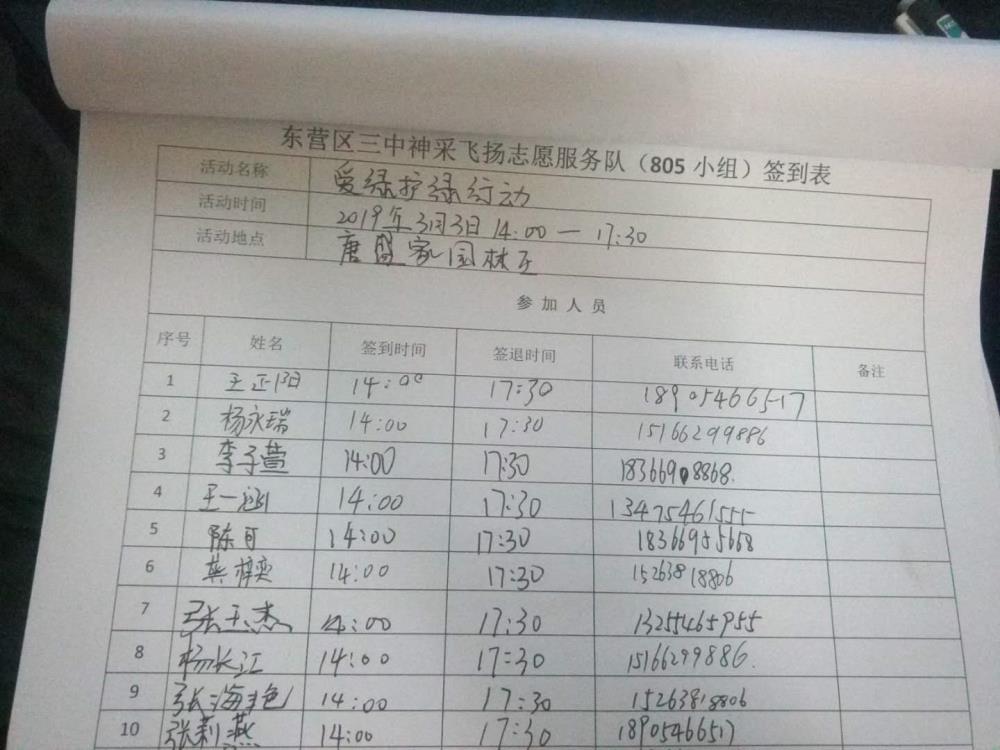 东营区三中神采飞扬志愿服务队（805 小组）签到表
活动名称 爱绿护绿行动
活动时间 2019年3月3日 14:00 — 17:30
活动地点 唐盛家园林区
参加人员
序号 姓名 签到时间 签退时间 联系电话 备注
1 王正阳 14:00 17:30 18905466517
2 杨永瑞 14:00 17:30 15166299886
3 李子萱 14:00 17:30
4 王一涵 14:00 17:30 13475461555
5 陈可 14:00 17:30 18366955668
6 14:00 17:30 15263818806
7 张玉杰 14:00 17:30 13255465955
8 杨长江 14:00 17:30 15166299886.
9 张海艳 14:00 17:30 15263818806
10 张莉燕 14:00 17:30 18905466517